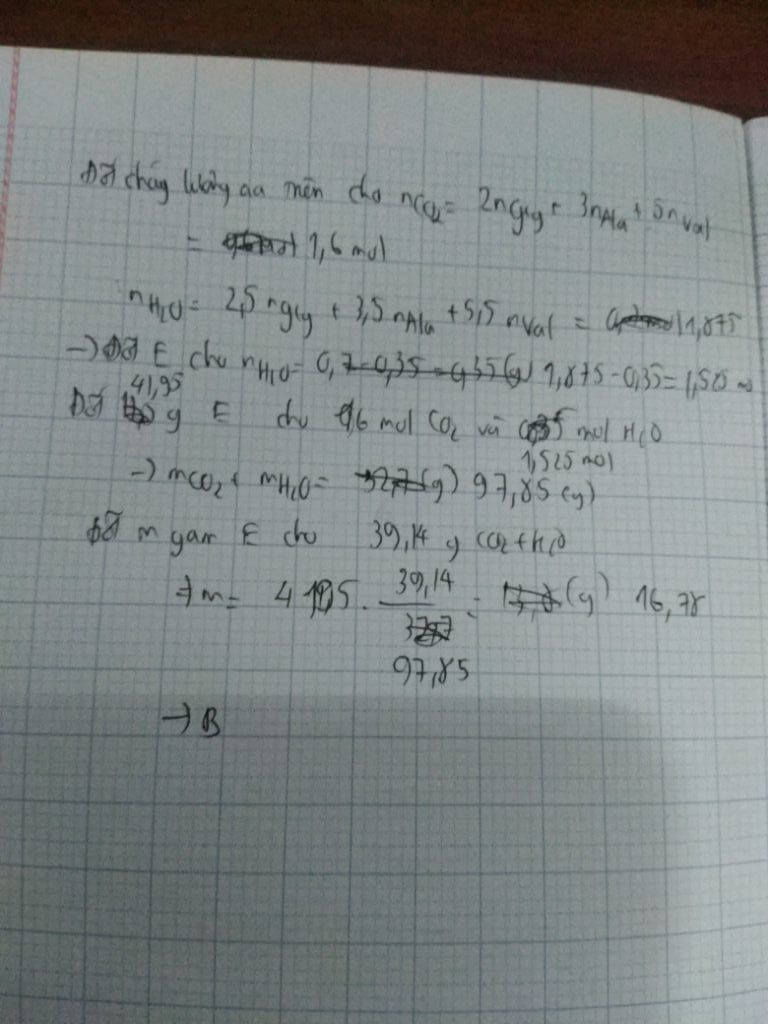 Đốt cháy lượng aa trên cho nCO2 = 2nGly + 3nAla + 5nVal
= 1,6 mol
nH2O = 2,5 nGly + 3,5 nAla + 5,5 nVal = 1,875
→ Đốt E cho nH2O = 0,7 - 0,35 = 0,35 (g) 1,875 - 0,35 = 1,525 mol
41,95
Đốt g E cho 1,6 mol CO2 và mol H2O
1,525 mol
→ mCO2 + mH2O = 32,7 (g) 97,85 (g)
Đốt m gam E cho 39,14 g CO2 + H2O
⇒ m = 41,95 . 39,14 = (g) 16,78
97,85
→ B